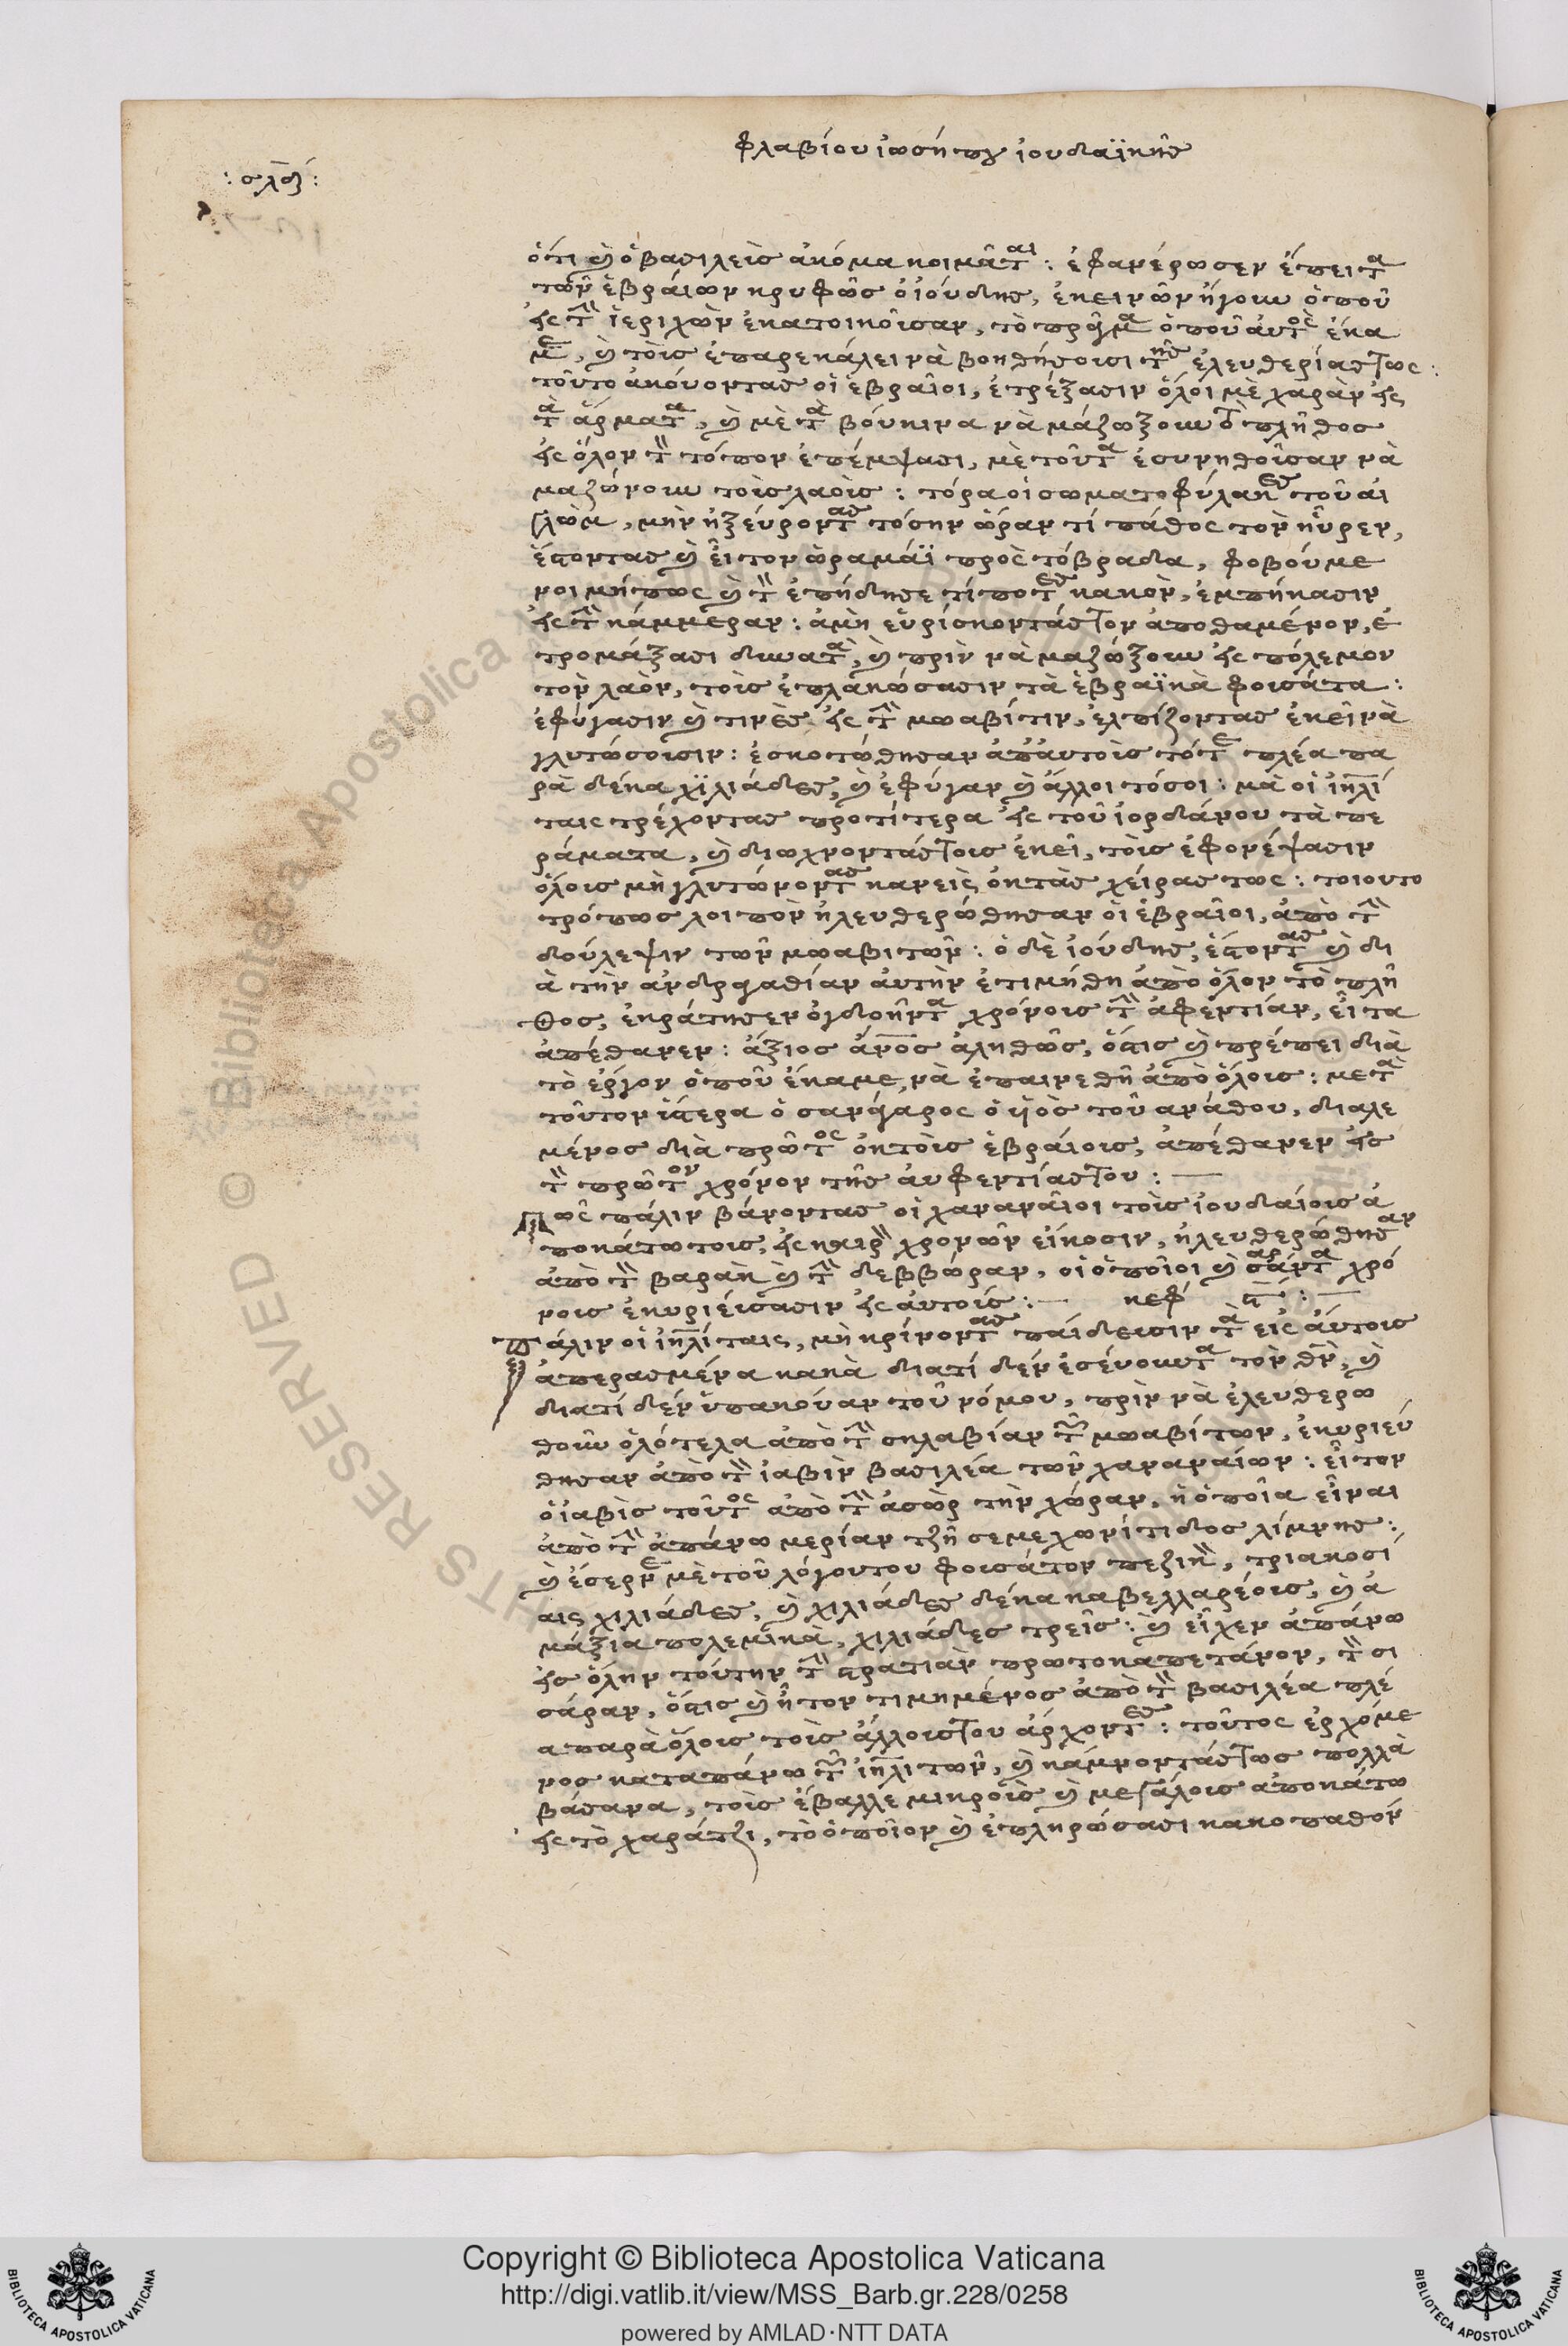 φλαβίου ἰωσήπου ἰουδαϊκῆς
ὅτι καὶ ὁ βασιλεὶς ἀκόμα κοιμᾶται : ἐφανέρωσεν ἔπειτα
τῶν ἑβράιων κρυφῶς ὁ ἰούδης, ἐκεινῶν ἤγουν ὁποῦ
εἰς τὴν ἱεριχὼν ἐκατοικοῖσαν, τὸ πρᾶγμα ὁποῦ ἀυτὸς ἔκα
με, καὶ τοὶς ἐπαρεκάλει νὰ βοηθήσοισι τῆς ἐλευθερίας τως :
τοῦτο ἀκούοντας οἱ ἑβραῖοι, ἐτρέξασιν ὅλοι μὲ χαρὰν εἰς
τὰ ἄρματα, καὶ μὲ τὰ βούκινα νὰ μαζώξουν τὸ πλῆθος
εἰς ὅλον τὸν τόπον ἐπέμψασι, μὲ τοῦτα ἐσυνηθοῖσαν νὰ
μαζώνουν τοὶς λαοὶς : τόρα οἱ σωματοφύλακες τοῦ αἰ
γλὼμ, μὴν ἠξεύροντας τόσην ὥραν τί πάθος τὸν ηὗρεν,
ἔστοντας καὶ εἶτον ὡραμάϊ πρὸς τόβραδα, φοβούμε
νοι μήπως καὶ τὸν ἐπήδησε τίποτες κακὸν, ἐμπήκασιν
εἰς τὴν κάμμεραν : ἀμὴ εὑρίσκοντάς τον ἀποθαμένον, ἐ
τρομάξασι δυνατὰ, καὶ πρὶν νὰ μαζώξουν εἰς πόλεμον
τὸν λαὸν, τοὶς ἐπλακώσασιν τὰ ἑβραϊκὰ φοισάτα :
ἐφύγασιν καὶ τινὲς εἰς τὴν μωαβίτιν, ἐλπίζοντας ἐκεῖ νὰ
γλυτώσοισιν : ἐσκοτώθησαν ἀπ' ἀυτοὶς τότε πλέα πα
ρὰ δέκα χϊλιάδες, καὶ ἐφύγαν καὶ ἄλλοι τόσοι : μὰ οἱ ἰηλί
ταις τρέχοντας προτίτερα εἰς τοῦ ἰορδάνου τὰ πε
ράματα, καὶ διωχνοντάς τοις ἐκεῖ, τοὶς ἐφονέψασιν
ὅλοις μὴ γλυτώνοντας κανεὶς ὀκτὰς χείρας τως : τοιουτο
τρόπως λοιπὸν ἠλευθερώθησαν οἱ ἑβραῖοι, ἀπὸ τὴν
δούλεψιν τῶν μωαβιτῶν : ὁ δὲ ἰούδης, ἔστοντας καὶ δι
ὰ τὴν ἀνδραγαθίαν ἀυτὴν ἐτιμήθη ἀπὸ ὅλον τὸ πλῆ
θος, ἐκράτησεν ὀγδοῆντα χρόνοις τὴν ἀφεντίαν, εἶτα
ἀπέθανεν : ἄξιος ἄνος ἀληθῶς, ὅστις καὶ πρέπει διὰ
τὸ ἔργον ὁποῦ ἔκαμε, νὰ ἐπαινεθῆ ἀπὸ ὅλοις : μετὰ
τοῦτον ὕστερα ὁ σανάγαρος ὁ ὑὸς τοῦ ανάθου, διαλε
μένος διὰ πρῶτος ὀκτὸις ἑβράιοις, ἀπέθανεν εἰς
τὸν πρῶτον χρόνον τῆς ἀυφεντίας του : —
Πῶς πάλιν βάνοντας οἱ χαναναῖοι τοὶς ἰουδαίοις ἀ
ποκάτωτοις, εἰς καιρὸν χρονῶν εἴκοσιν, ἠλευθερώθησαν
ἀπὸ τὸν βαρὰκ καὶ τὴν δεββώραν, οἱ ὁποῖοι καὶ σαράντα χρό
νοις ἐκυριείσασιν εἰς αὐτοίς : — κεφ ϛ : —
Πάλιν οἱ ἰηλίταις, μὴ κρίνοντας πάιδευσιν τὰ εἰς ἀύτοις
ἀπερασμένα κακὰ διατί δὲν ἐσέυουντα τὸν θν, καὶ
διατί δὲν ὑπακούαν τοῦ νόμου, πρὶν νὰ ἐλευθερω
θοῦν ὁλότελα ἀπὸ τὴν σκλαβίαν τῶν μωαβίτων, ἐκυριεύ
θησαν ἀπὸ τὸν ἰαβὶν βασιλέα τῶν χαναναίων : εἶτον
ὁ ἰαβὶς τοῦτος ἀπὸ τὴν ἀσὼρ τὴν χώραν, ἡ ὁποῖα εἶναι
ἀπὸ τὴν ἀπάνω μερίαν τζῆ σεμεχωνίτιδος λίμνης :
καὶ ἔσερνε μὲ τοῦ λόγουτου φοισάτον πεζικὸν, τριακοσί
αις χιλιάδες, καὶ χιλιάδες δέκα καβελλαρέοις, καὶ ἁ
μάξια πολεμικὰ, χιλιάδες τρεῖς : καὶ εἶχεν ἀπάνω
εἰς ὅλην τούτην τὴν στρατιὰν πρωτοκαπετάνον, τὸν σι
σάραν, ὅστις καὶ ἦτον τιμημένος ἀπὸ τὸν βασιλέα πλέ
α παρὰ ὅλοις τοὶς ἄλλοις του ἄρχοντες : τοῦτος ἐρχόμε
νος καταπάνω τῶν ἰηλιτῶν, καὶ κάμνοντάς τως πολλὰ
βάσανα, τοὶς ἔβαλλε μικροὶς καὶ μεγάλοις ἀποκάτω
εἰς τὸ χαράτζι, τὸ ὁποῖον καὶ ἐπληρώσασι κακοπαθόν
Copyright © Biblioteca Apostolica Vaticana
http://digi.vatlib.it/view/MSS_Barb.gr.228/0258
powered by AMLAD·NTT DATA